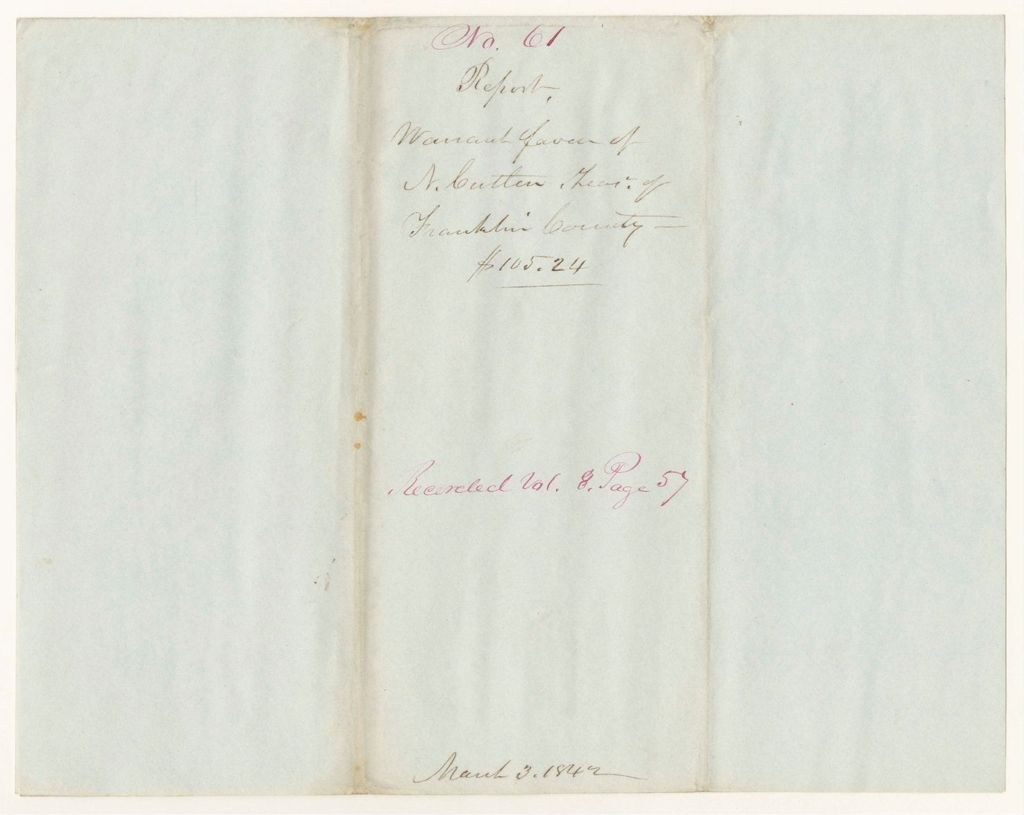 No. 61
Report,
Warrant favour of
N. Cutten Treas. of
Franklin County —
$105.24
Recorded Vol. 8. Page 57
March 3. 1842